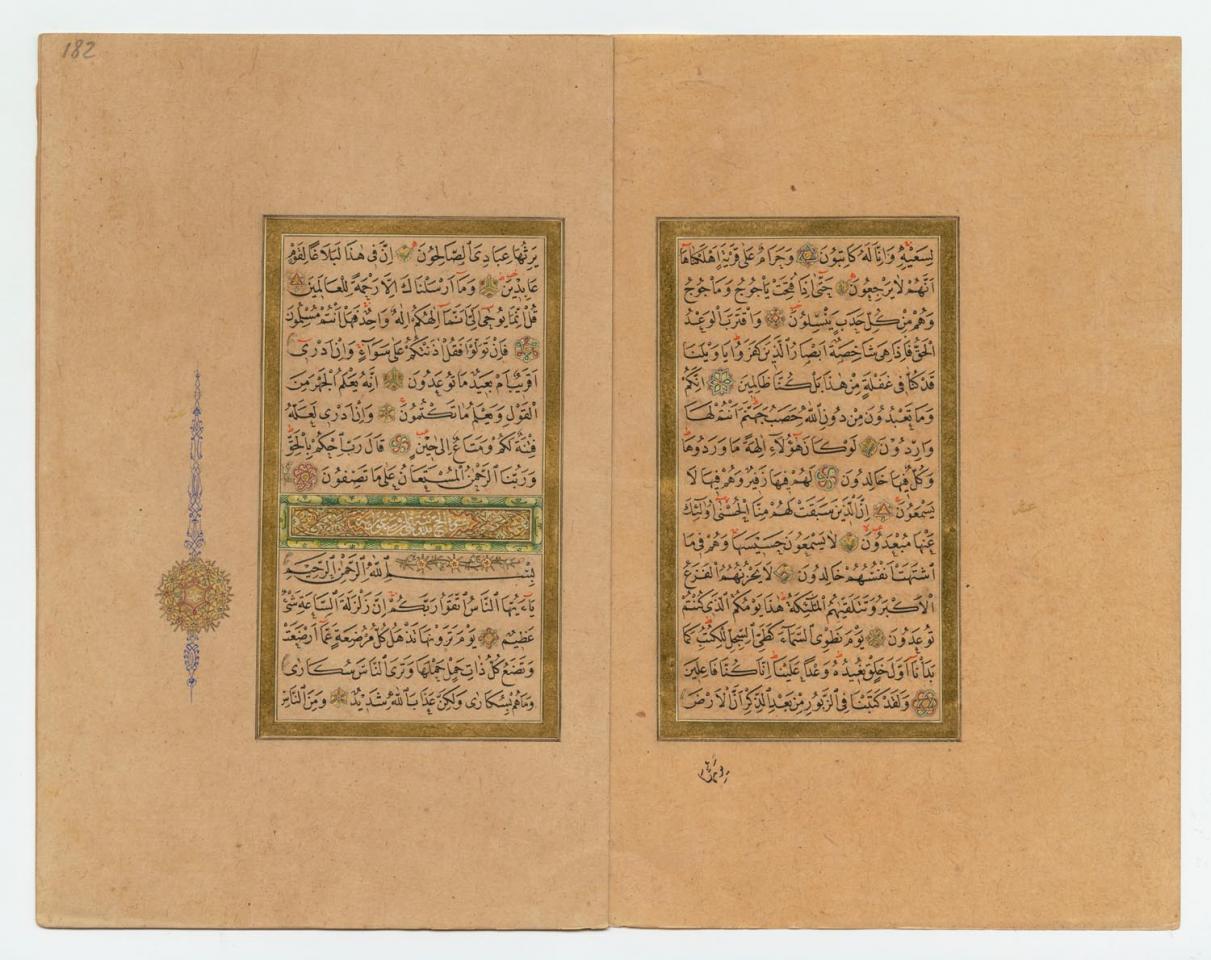 لِسَعْيِهِ وَاِنَّا لَهُ كَاتِبُونَ وَحَرَامٌ عَلٰى قَرْيَةٍ اَهْلَكْنَاهَا
اَنَّهُمْ لَا يَرْجِعُونَ حَتّٰى اِذَا فُتِحَتْ يَأْجُوجُ وَمَأْجُوجُ
وَهُمْ مِنْ كُلِّ حَدَبٍ يَنْسِلُونَ وَاقْتَرَبَ الْوَعْدُ
الْحَقُّ فَاِذَا هِيَ شَاخِصَةٌ اَبْصَارُ الَّذِينَ كَفَرُوا يَا وَيْلَنَا
قَدْ كُنَّا فِى غَفْلَةٍ مِنْ هٰذَا بَلْ كُنَّا ظَالِمِينَ اِنَّكُمْ
وَمَا تَعْبُدُونَ مِنْ دُونِ اللّٰهِ حَصَبُ جَهَنَّمَ اَنْتُمْ لَهَا
وَارِدُونَ لَوْ كَانَ هٰؤُلَاءِ اٰلِهَةً مَا وَرَدُوهَا
وَكُلٌّ فِيهَا خَالِدُونَ لَهُمْ فِيهَا زَفِيرٌ وَهُمْ فِيهَا لَا
يَسْمَعُونَ اِنَّ الَّذِينَ سَبَقَتْ لَهُمْ مِنَّا الْحُسْنٰى اُولٰئِكَ
عَنْهَا مُبْعَدُونَ لَا يَسْمَعُونَ حَسِيسَهَا وَهُمْ فِى مَا
اشْتَهَتْ اَنْفُسُهُمْ خَالِدُونَ لَا يَحْزُنُهُمُ الْفَزَعُ
الْاَكْبَرُ وَتَتَلَقّٰيهُمُ الْمَلٰئِكَةُ هٰذَا يَوْمُكُمُ الَّذِى كُنْتُمْ
تُوعَدُونَ يَوْمَ نَطْوِى السَّمَاءَ كَطَيِّ السِّجِلِّ لِلْكُتُبِ كَمَا
بَدَأْنَا اَوَّلَ خَلْقٍ نُعِيدُهُ وَعْدًا عَلَيْنَا اِنَّا كُنَّا فَاعِلِينَ
وَلَقَدْ كَتَبْنَا فِى الزَّبُورِ مِنْ بَعْدِ الذِّكْرِ اَنَّ الْاَرْضَ
182
يَرِثُهَا عِبَادِىَ الصَّالِحُونَ اِنَّ فِى هٰذَا لَبَلَاغًا لِقَوْمٍ
عَابِدِينَ وَمَا اَرْسَلْنَاكَ اِلَّا رَحْمَةً لِلْعَالَمِينَ
قُلْ اِنَّمَا يُوحٰى اِلَيَّ اَنَّمَا اِلٰهُكُمْ اِلٰهٌ وَاحِدٌ فَهَلْ اَنْتُمْ مُسْلِمُونَ
فَاِنْ تَوَلَّوْا فَقُلْ اٰذَنْتُكُمْ عَلٰى سَوَاءٍ وَاِنْ اَدْرِى
اَقَرِيبٌ اَمْ بَعِيدٌ مَا تُوعَدُونَ اِنَّهُ يَعْلَمُ الْجَهْرَ مِنَ
الْقَوْلِ وَيَعْلَمُ مَا تَكْتُمُونَ وَاِنْ اَدْرِى لَعَلَّهُ
فِتْنَةٌ لَكُمْ وَمَتَاعٌ اِلٰى حِينٍ قَالَ رَبِّ احْكُمْ بِالْحَقِّ
وَرَبُّنَا الرَّحْمٰنُ الْمُسْتَعَانُ عَلٰى مَا تَصِفُونَ
بِسْمِ اللّٰهِ الرَّحْمٰنِ الرَّحِيمِ
يَاءَيُّهَا النَّاسُ اتَّقُوا رَبَّكُمْ اِنَّ زَلْزَلَةَ السَّاعَةِ شَىْءٌ
عَظِيمٌ يَوْمَ تَرَوْنَهَا تَذْهَلُ كُلُّ مُرْضِعَةٍ عَمَّا اَرْضَعَتْ
وَتَضَعُ كُلُّ ذَاتِ حَمْلٍ حَمْلَهَا وَتَرَى النَّاسَ سُكَارٰى
وَمَا هُمْ بِسُكَارٰى وَلٰكِنَّ عَذَابَ اللّٰهِ شَدِيدٌ وَمِنَ النَّاسِ